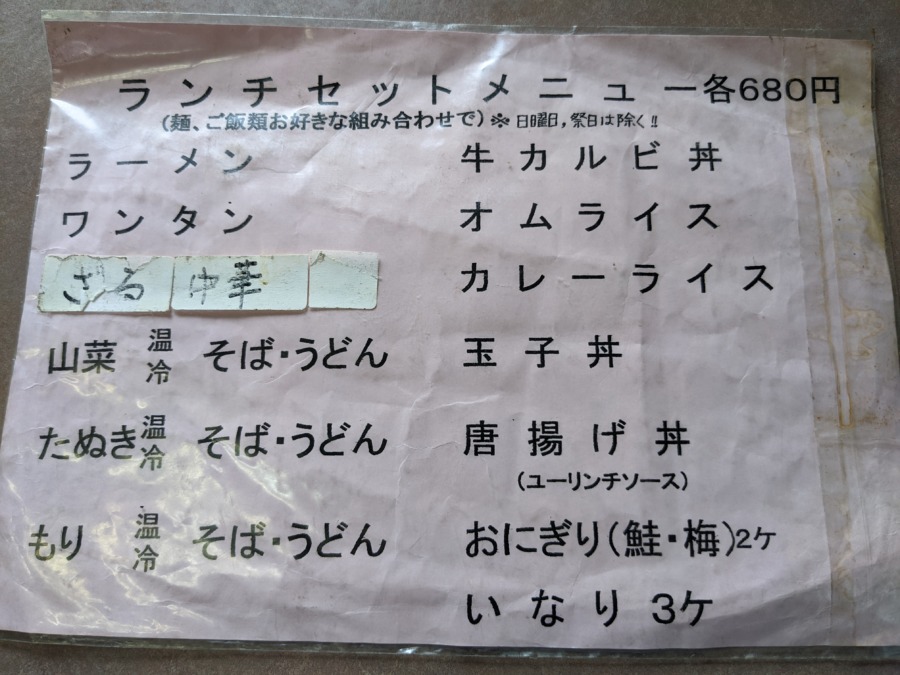 ランチセットメニュー各680円
(麺、ご飯類お好きな組み合わせで)※ 日曜日,祭日は除く!!
ラーメン
ワンタン
ざる中華
山菜 温冷 そば・うどん
たぬき 温冷 そば・うどん
もり 温冷 そば・うどん
牛カルビ丼
オムライス
カレーライス
玉子丼
唐揚げ丼
(ユーリンチソース)
おにぎり(鮭・梅)2ケ
いなり 3ケ